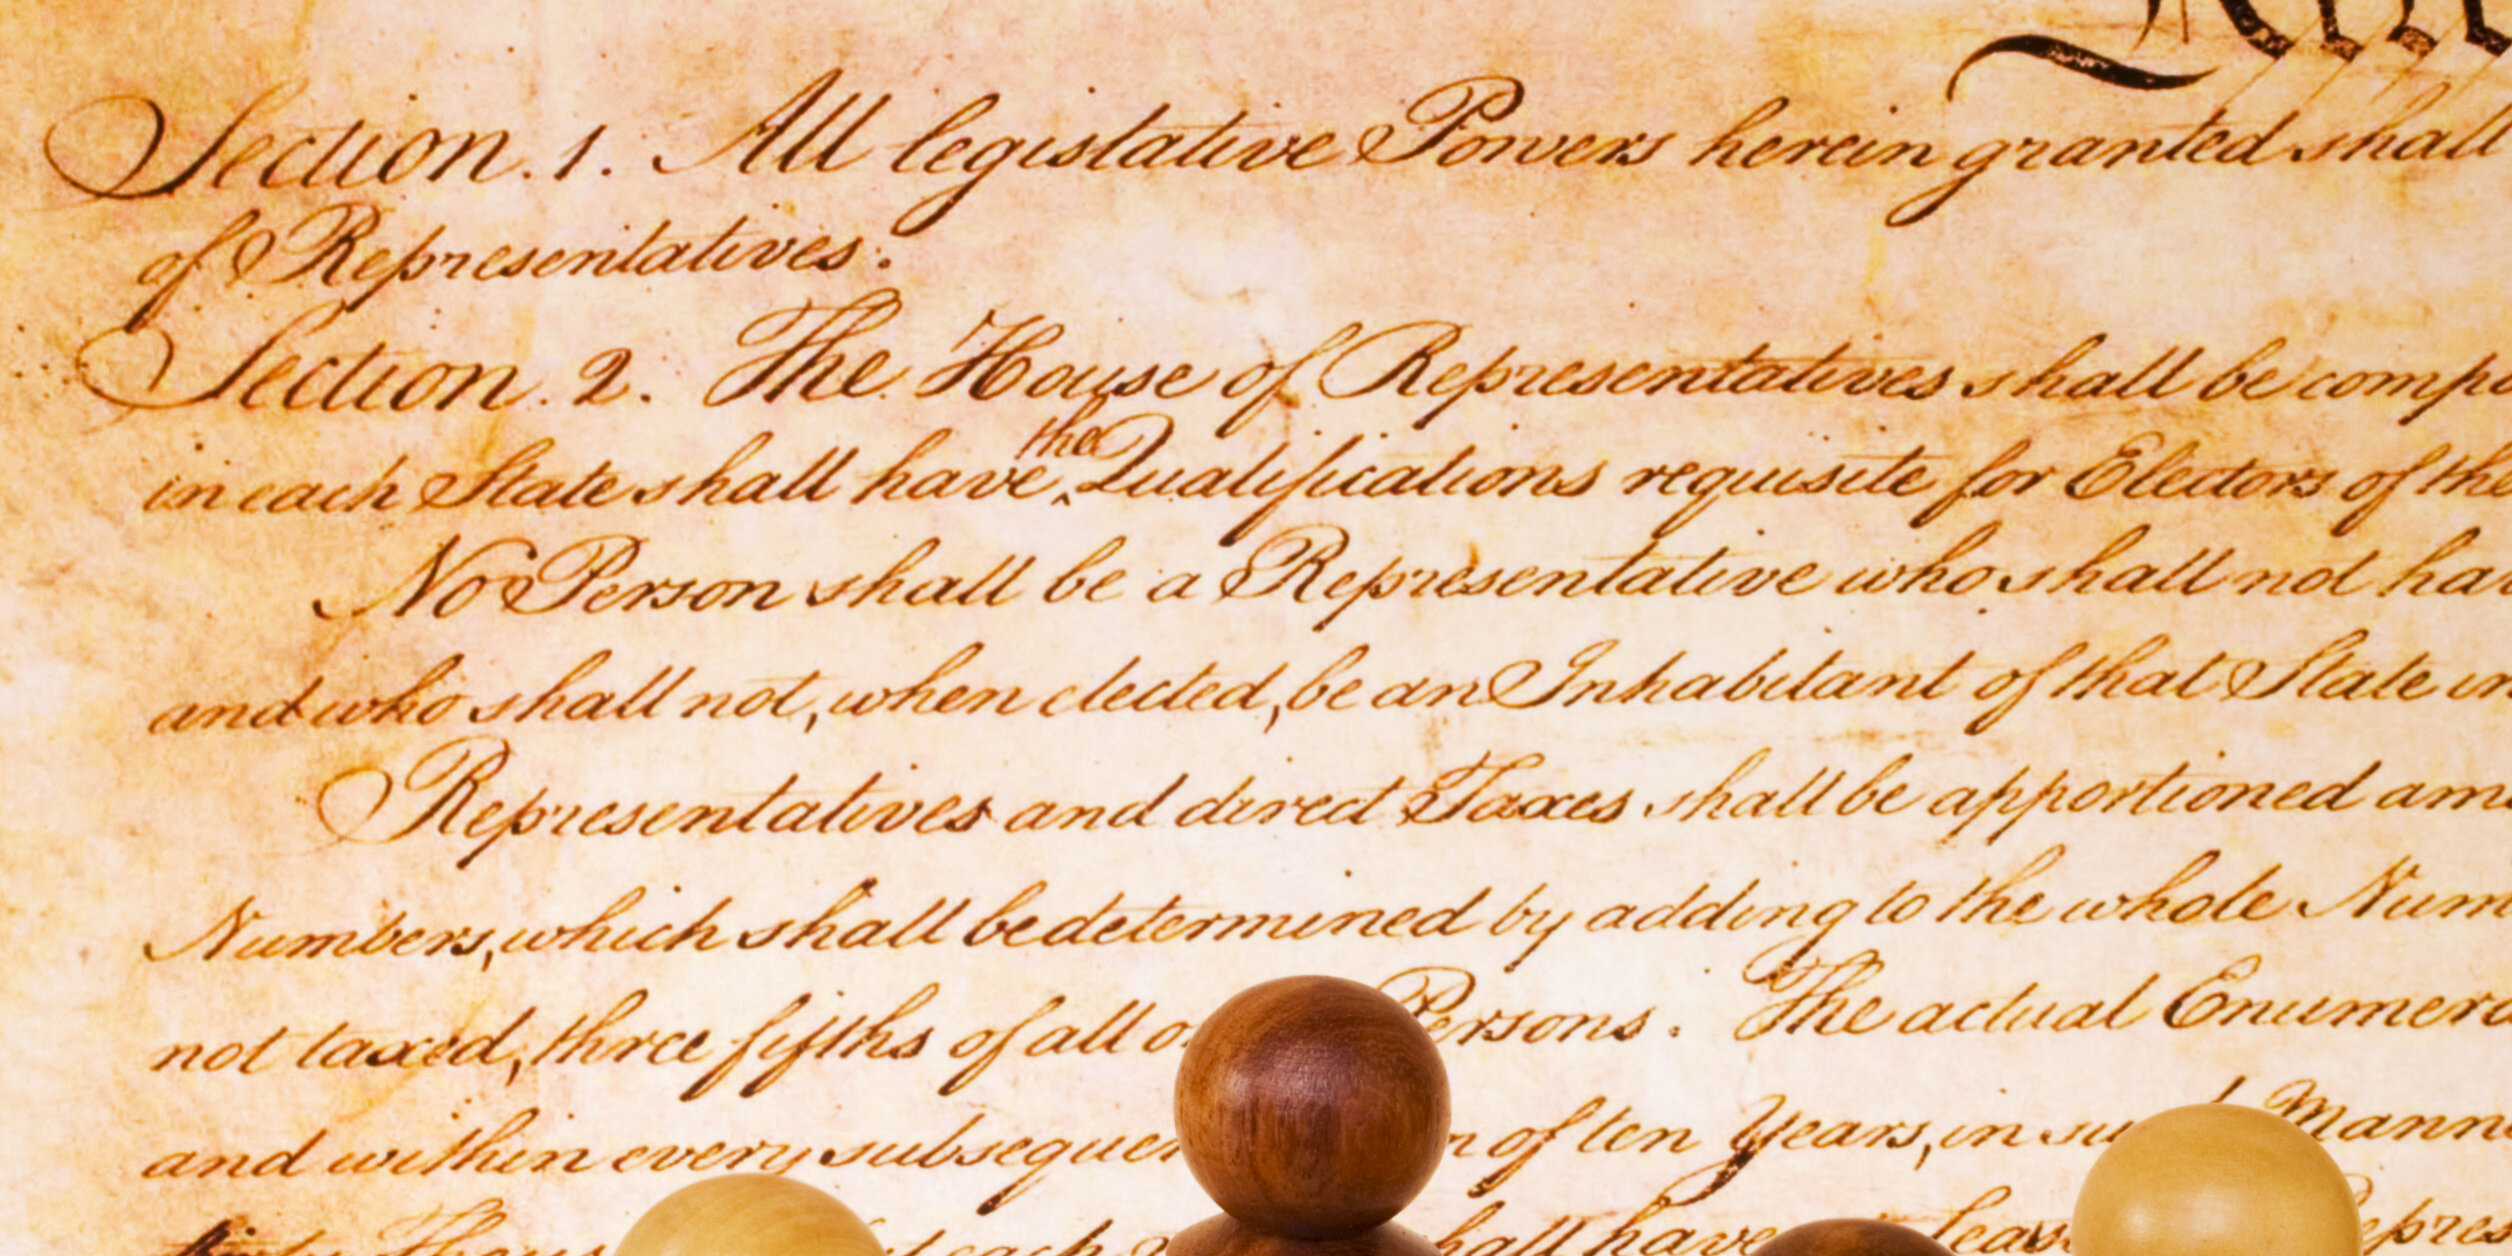 Section. 1. All legislative Powers herein granted shall
of Representatives.
Section. 2. The House of Representatives shall be comp
in each State shall have the Qualifications requisite for Electors of the
No Person shall be a Representative who shall not ha
and who shall not, when elected, be an Inhabitant of that State in
Representatives and direct Taxes shall be apportioned am
Numbers, which shall be determined by adding to the whole Num
not taxed, three fifths of all o Persons. The actual Enumera
and within every subsequen of ten Years, in su Mann
each hall have leas epres